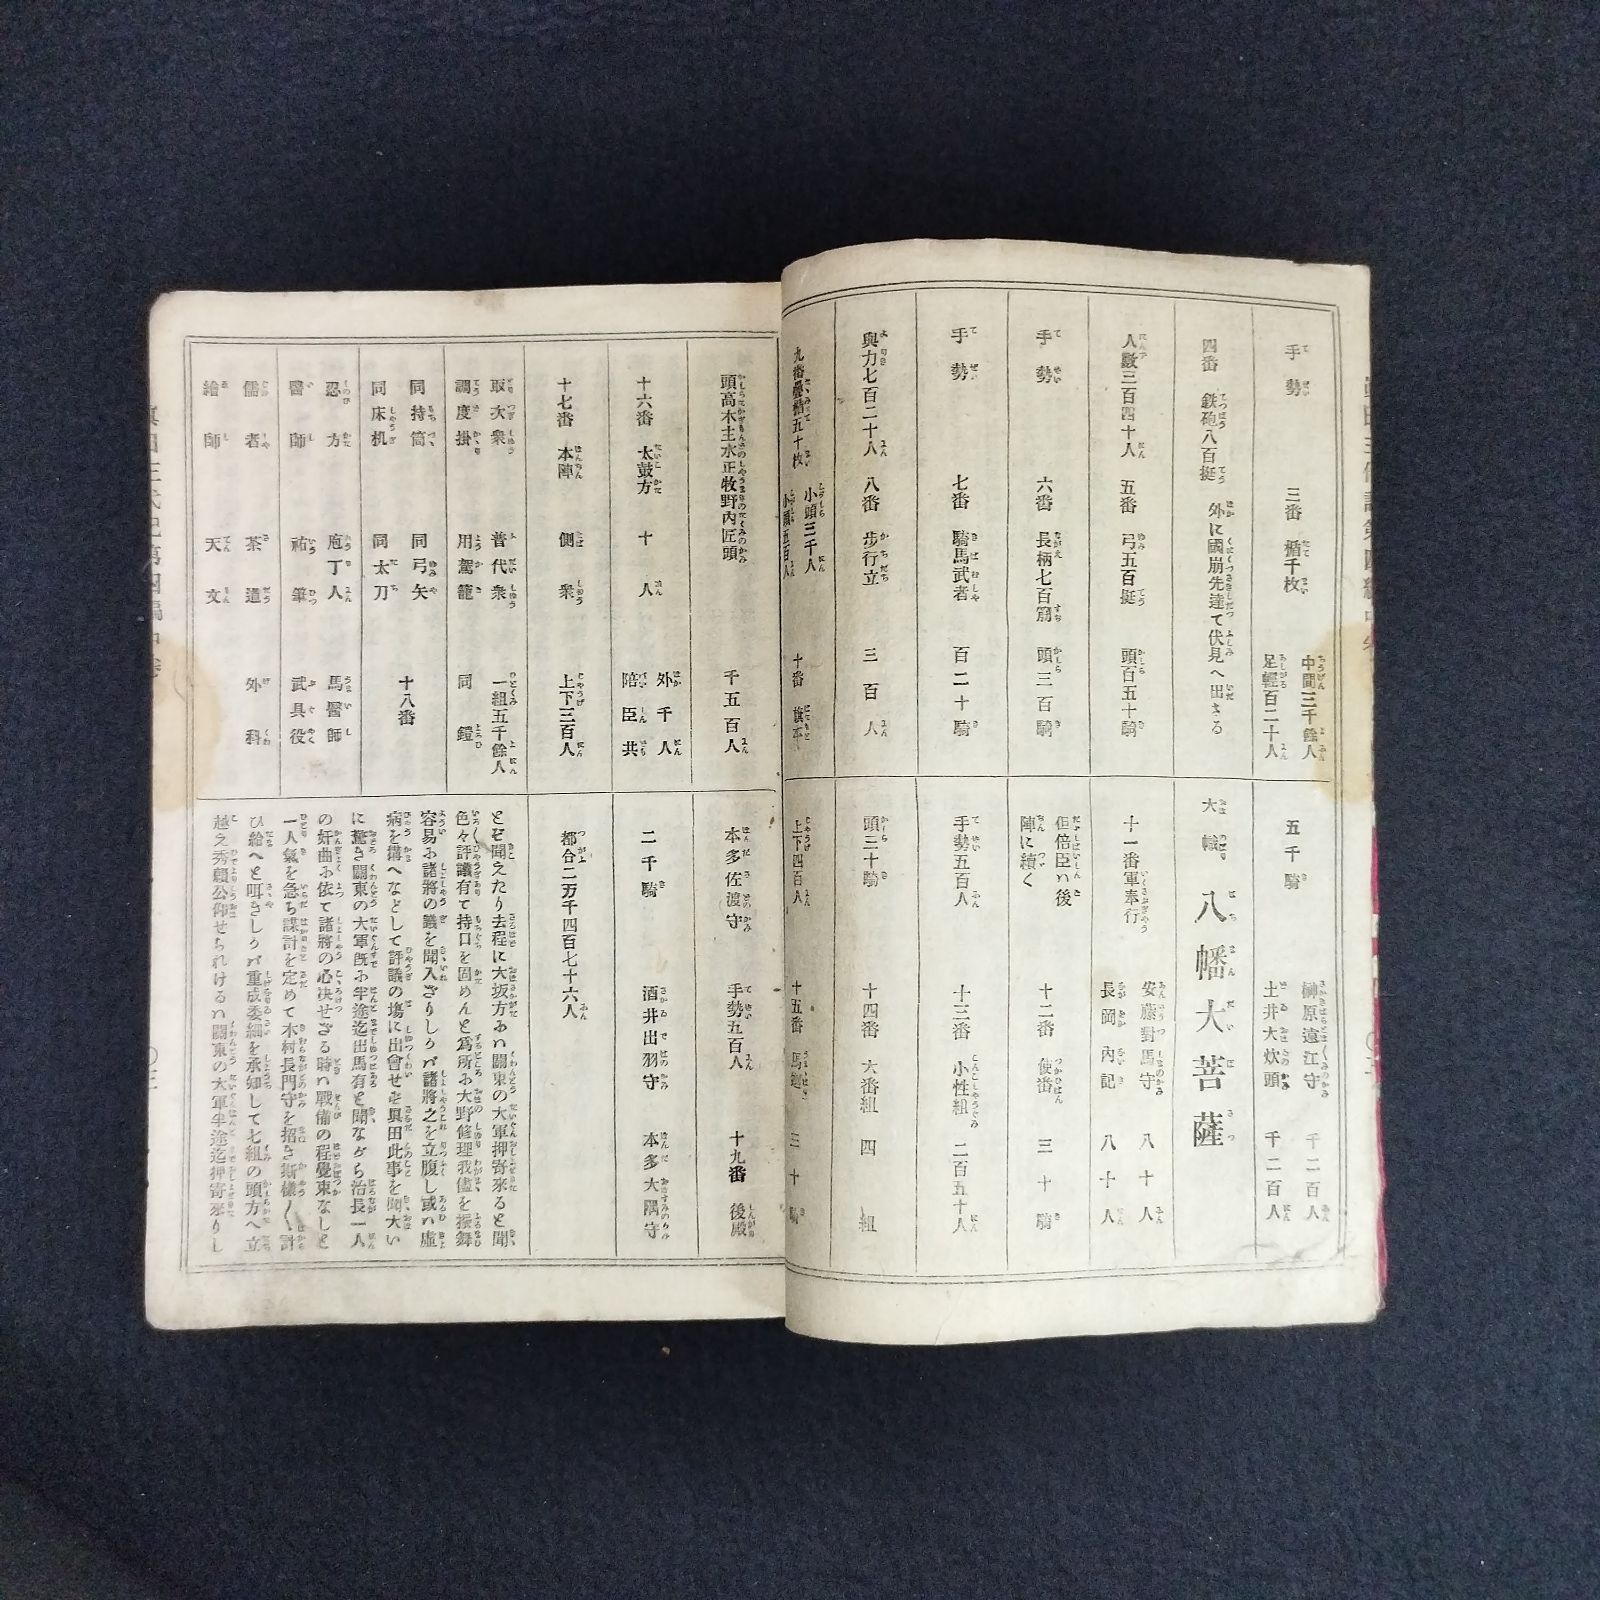 手勢
三番 楯千枚
中間三千餘人
足輕百二十人
四番 鉄砲八百挺 外に國崩先達て伏見へ出さる
人數三百四十人 五番 弓五百挺 頭百五十騎
手勢 六番 長柄七百筋 頭三百騎
手勢 七番 騎馬武者 百二十騎
與力七百二十人 八番 步行立 三百人
九番疊楯五十枚
小頭三千人
小頭五百人
十番 旗本
五千騎
榊原遠江守 千二百人
土井大炊頭 千二百人
大幟 八幡大菩薩
十一番軍奉行
安藤對馬守 八十人
長岡內記 八十人
但倍臣ハ後
陣に續く
十二番 使番 三十騎
手勢五百人 十三番 小性組 二百五十人
頭三十騎 十四番 大番組 四組
上下四百人 十五番 馬廻 三十騎
頭高木主水正牧野內匠頭 千五百人
十六番 太鼓方 十人
外千人
陪臣共
十七番 本陣 側衆 上下三百人
取次衆 普代衆 一組五千餘人
調度掛 用駕籠 同鎧
同持筒 同弓矢
同床机 同太刀
十八番
忍方 庖丁人 馬醫師
醫師 祐筆 武具役
儒者 茶道 外科
繪師 天文
本多佐渡守 手勢五百人 十九番 後殿
二千騎 酒井出羽守 本多大隅守
都合二万千四百七十六人
とぞ聞えたり去程に大坂方にハ關東の大軍押寄來ると聞
色々評議有て持口を固めんと爲所に大野修理我儘を振舞
容易に諸將の議を聞入ざりしかバ諸將之を立腹し或ハ虛
病を搆へなどして評議の塲に出會せず眞田此事を聞大い
に驚き關東の大軍既に半途迄出馬有と聞ながら治長一人
の奸曲に依て諸將の心决せざる時ハ戰備の程覺束なしと
一人氣を急ち謀計を定めて木村長門守を招き斯樣〱計
ひ給へと咡きしかバ重成委細を承知して七組の頭方へ立
越え秀賴公仰せられけるハ關東の大軍半途迄押寄來りし